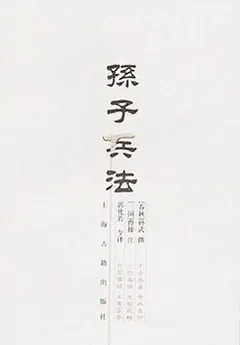 孫子兵法
[春秋]孫武 撰
[三國]曹操 注
郭化若 今譯
上海古籍出版社